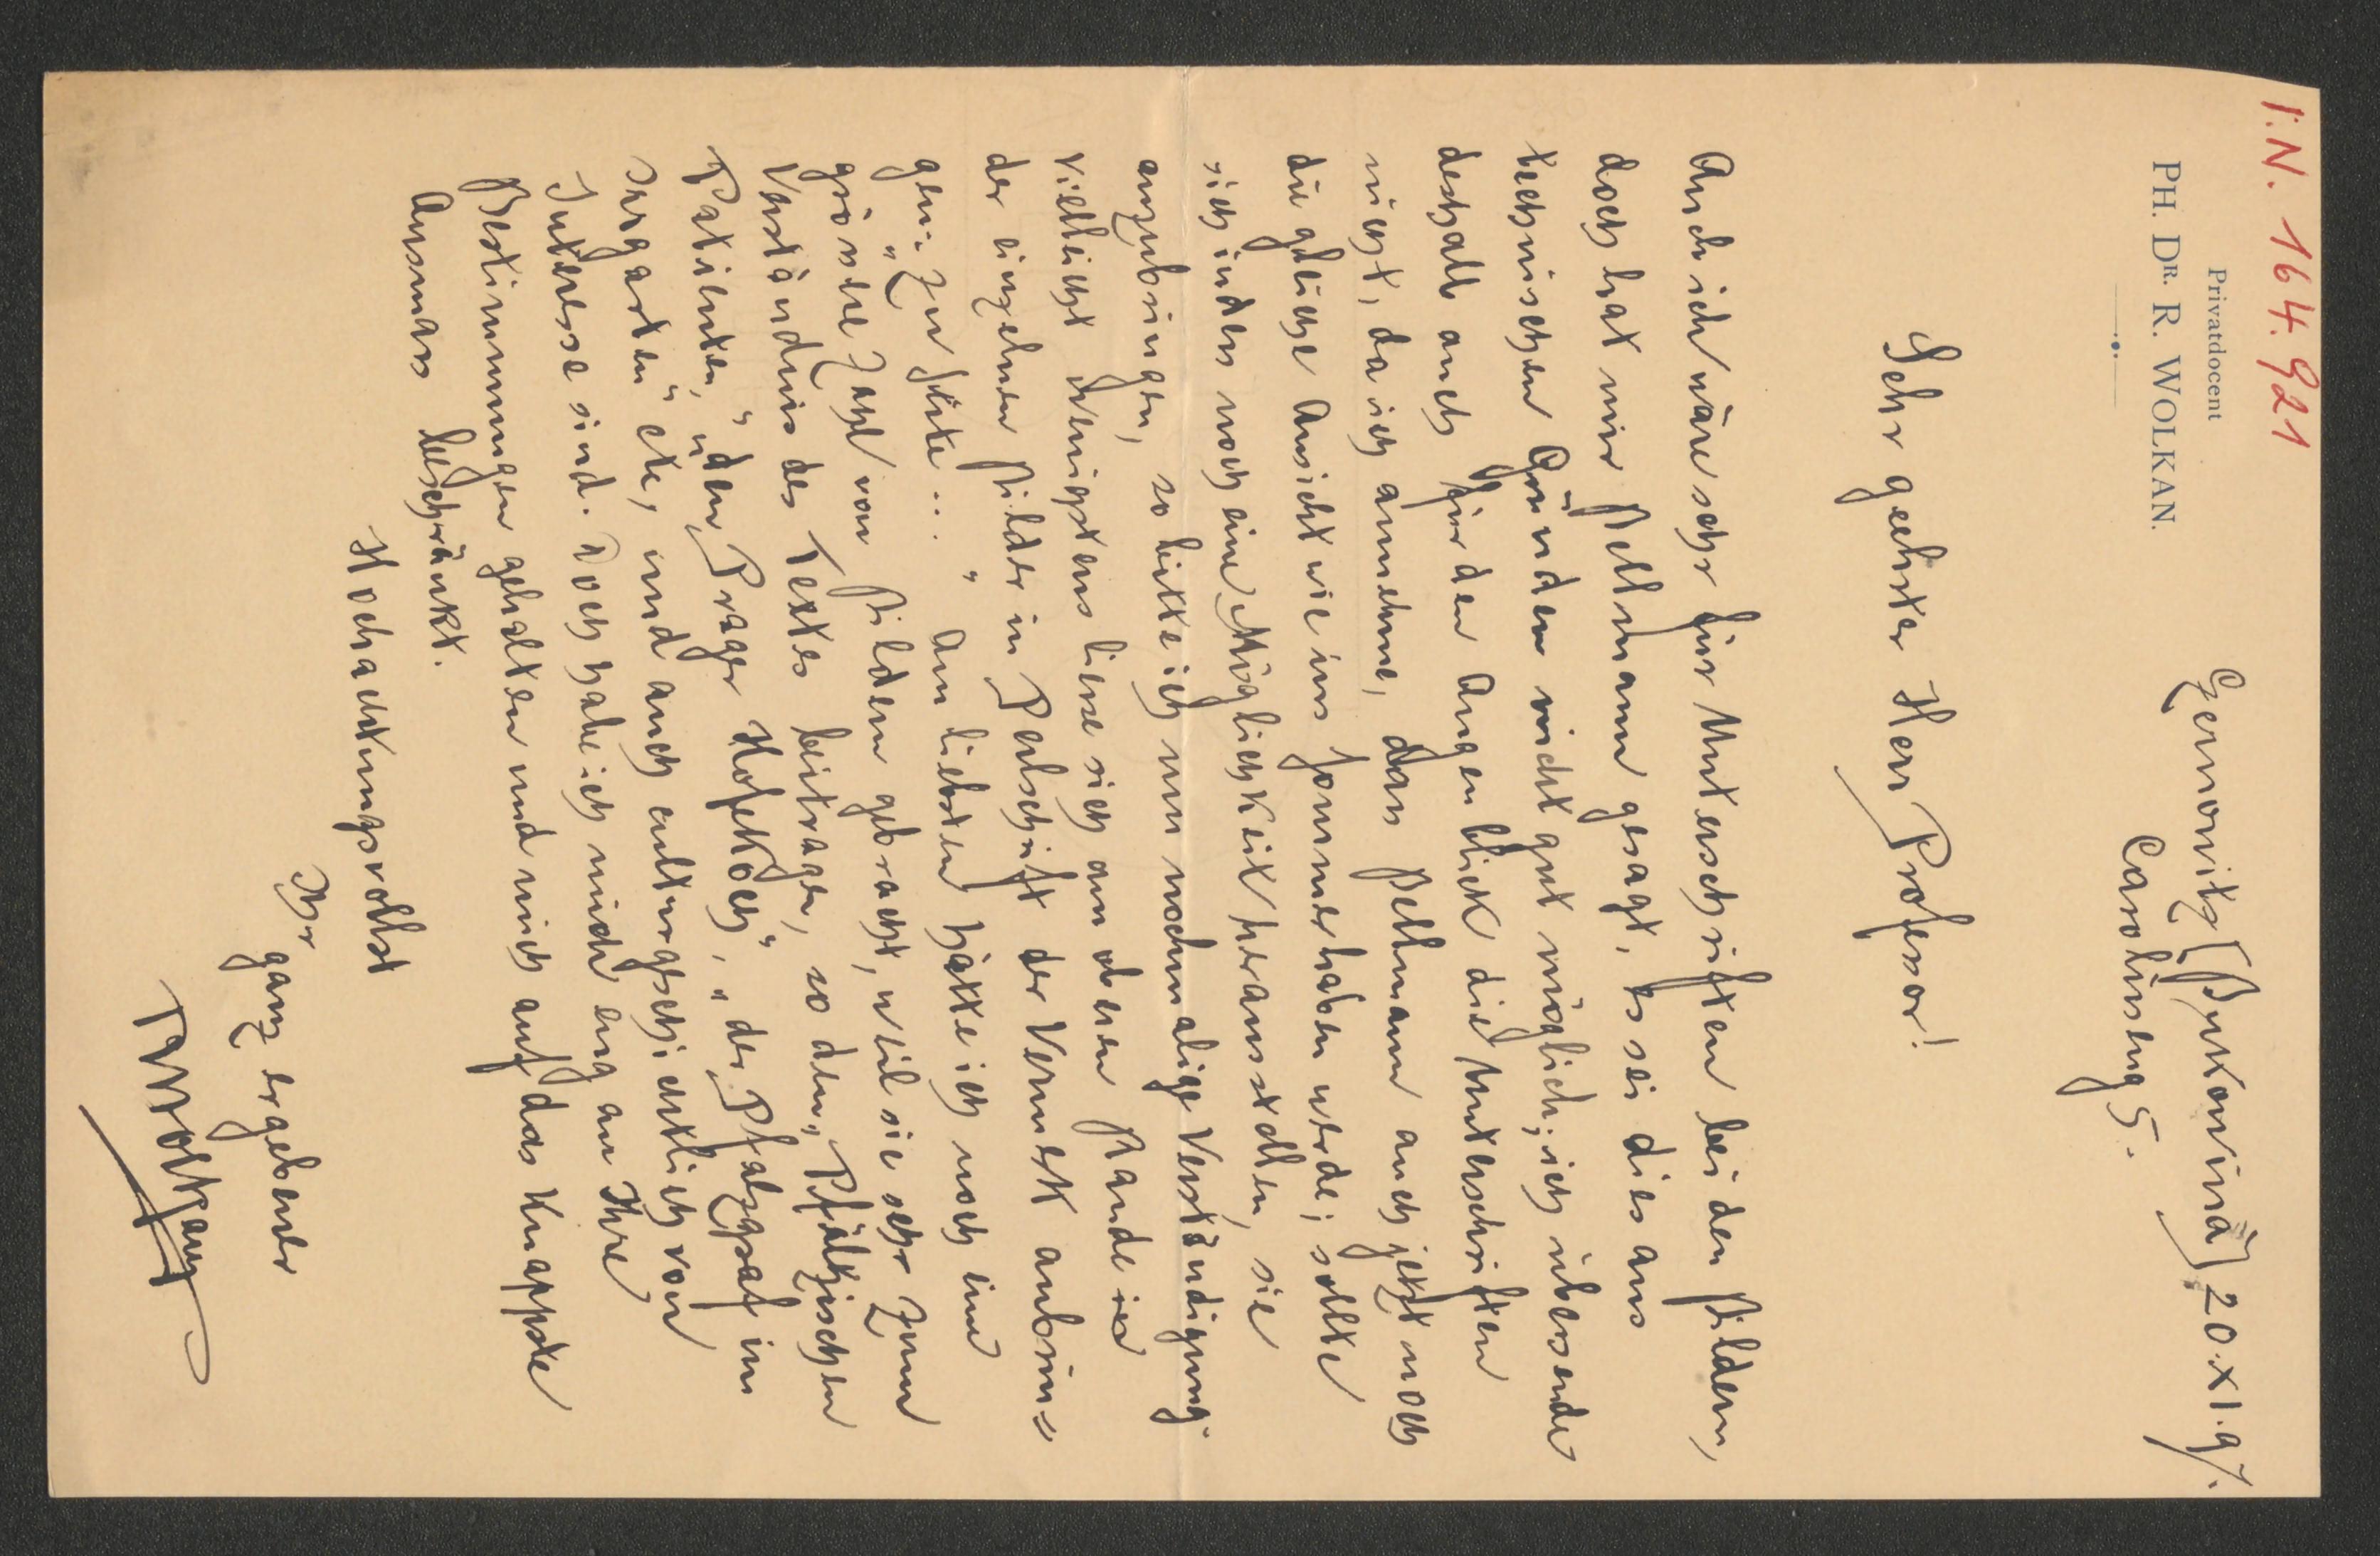 I.N. 164.921
Privatdocent
PH. DR. R. WOLKAN.
Czernowitz (Bukowina) 20.XI.97.
Carolineng 5.
Sehr geehrter Herr Professor!
Auch ich wäre sehr für Unterschriften bei den Bildern,
doch hat mir Bellmann gesagt, es sei dies aus
technischen Gründen nicht gut möglich; ich übersende
deshalb auch für den Augenblick die Unterschriften
nicht, da ich annehme, dass Bellmann auch jetzt noch
die gleiche Ansicht wie im Sommer haben werde; sollte
sich indess noch eine Möglichkeit herausstellen, sie
anzubringen, so bitte ich um nochmalige Verständigung.
Vielleicht wenigstens liesse sich am oberen Rande
der einzelnen Bilder in Perlschrift der Vermerk anbrin-
gen: „Zu Seite ..." Am liebsten hätte ich noch eine
grössere Zahl von Bildern gebracht, weil sie sehr zum
Verständnis des Textes beitragen, so den „Pfälzischen
Patienten," „den Prager Hofkoch", „der Pfalzgraf im
Irrgarten" etc, und auch culturgeschichtlich von
Interesse sind. Doch habe ich mich eng an Ihre
Bestimmungen gehalten und mich auf das knappste
Ausmass beschränkt.
Hochachtungsvollst
Ihr ganz ergebener
R Wolkan